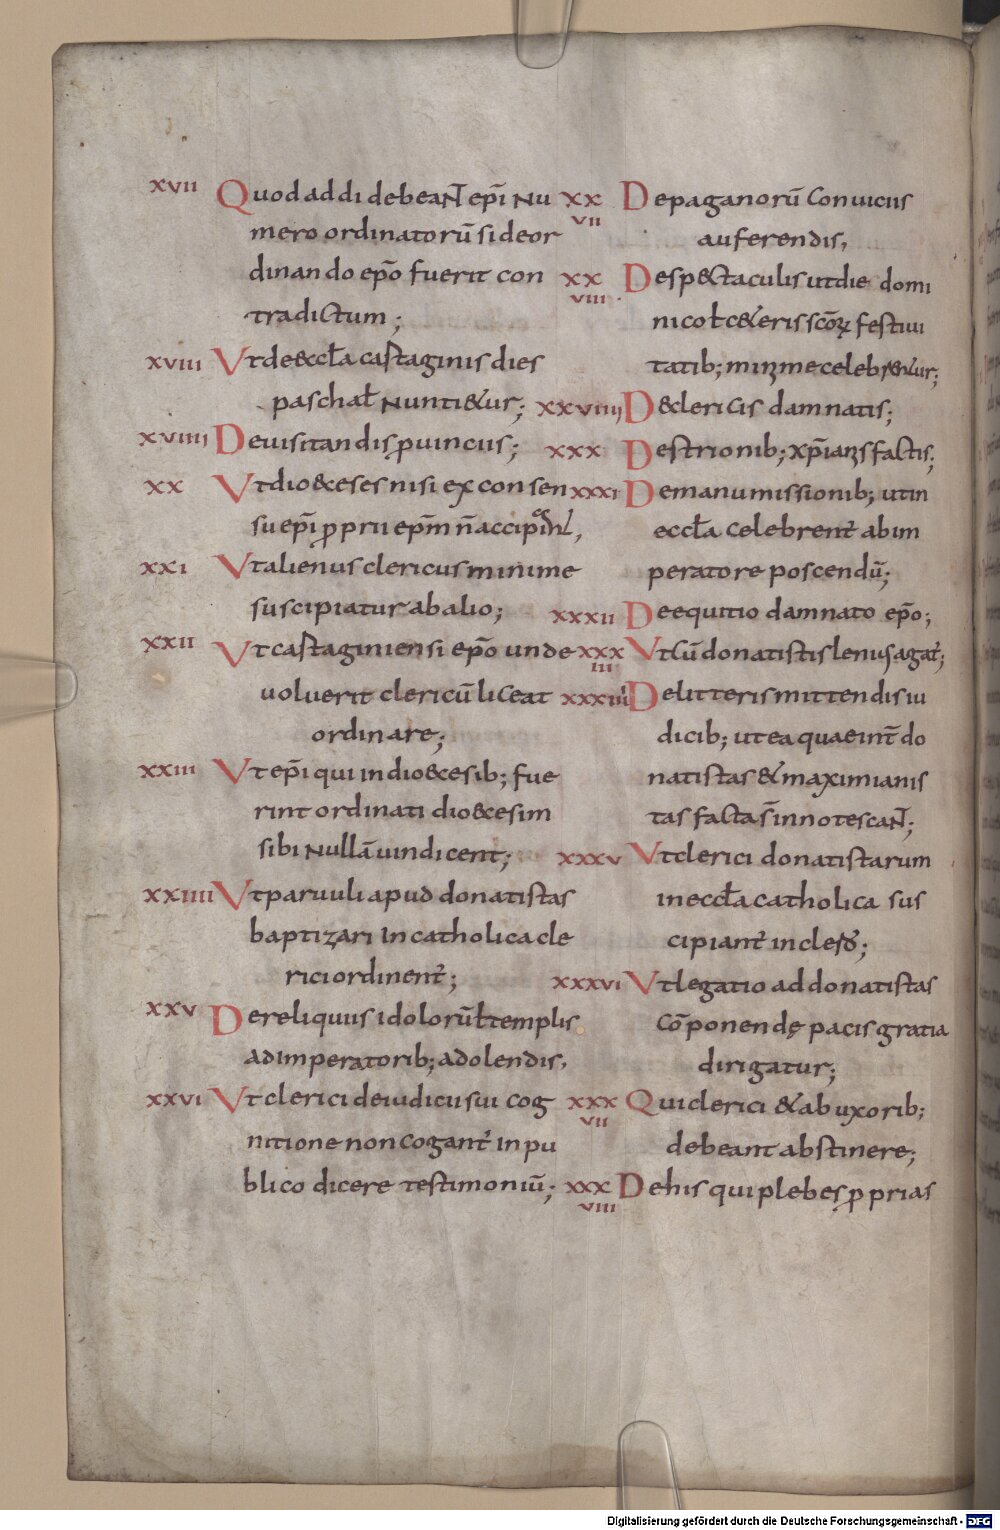 XVII Quod addi debeaN̄ ep̄i Nu
mero ordinatorū si de or
dinando ep̄o fuerit con
tradictum;
XVIII Vt de æccl̄a castaginis dies
paschal̄ Nunti&ur;
XVIIII De uisitandis ꝓuinciis;
XX Vt dioeceses nisi ex consen
su ep̄i proprii ep̄m n̄ accip
XXI Vt alienus clericus minime
suscipiatur ab alio;
XXII Vt castaginiensi ep̄o unde
uoluerit clericū liceat
ordinare;
XXIII Vt ep̄i qui in dioecesib; fue
rint ordinati dioecesim
sibi Nullā uindicent;
XXIIII Vt paruuli apud donatistas
baptizari In catholica cle
rici ordinent̄;
XXV De reliquiis idolorū ł templis
ad imperatorib; adolendis,
XXVI Vt clerici de iudicii sui cog
nitione non cogant̄ in pu
blico dicere testimoniū;
XXVII De paganorū conuiciis
auferendis,
XXVIII De sp&aculis ut die domi
nico ł c&eris sc̄oꝝ festiui
tatib; minime celebr&ur;
XXVIIII De clericis damnatis;
XXX De strionib; xp̄ianis factis;
XXXI De manumissionib; ut in
eccl̄a celebrent ab im
peratore poscendū;
XXXII De equitio damnato ep̄o;
XXXIII Vt cū donatistis lenius agat̄;
XXXIIII De litteris mittendis iu
dicib; ut ea quae int̄ do
natistas & maximianis
tas facta s̄ innotescaN̄;
XXXV Vt clerici donatistarum
in eccl̄a catholica sus
cipiant̄ in clero;
XXXVI Vt legatio ad donatistas
cōponendę pacis gratia
dirigatur;
XXXVII Qui clerici & ab uxorib;
debeant abstinere;
XXXVIII De his qui plebes ꝓprias
Digitalisierung gefördert durch die Deutsche Forschungsgemeinschaft - DFG